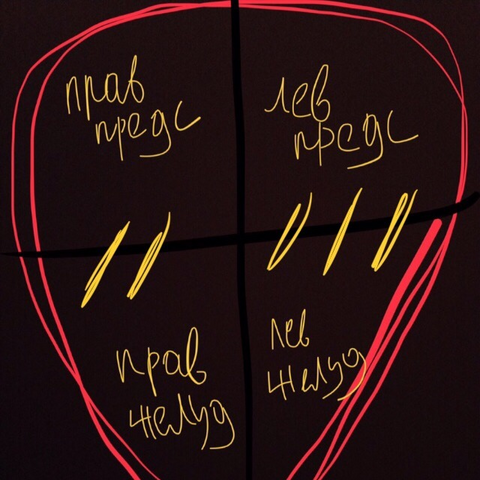 прав
предс
лев
предс
прав
желуд
лев
желуд